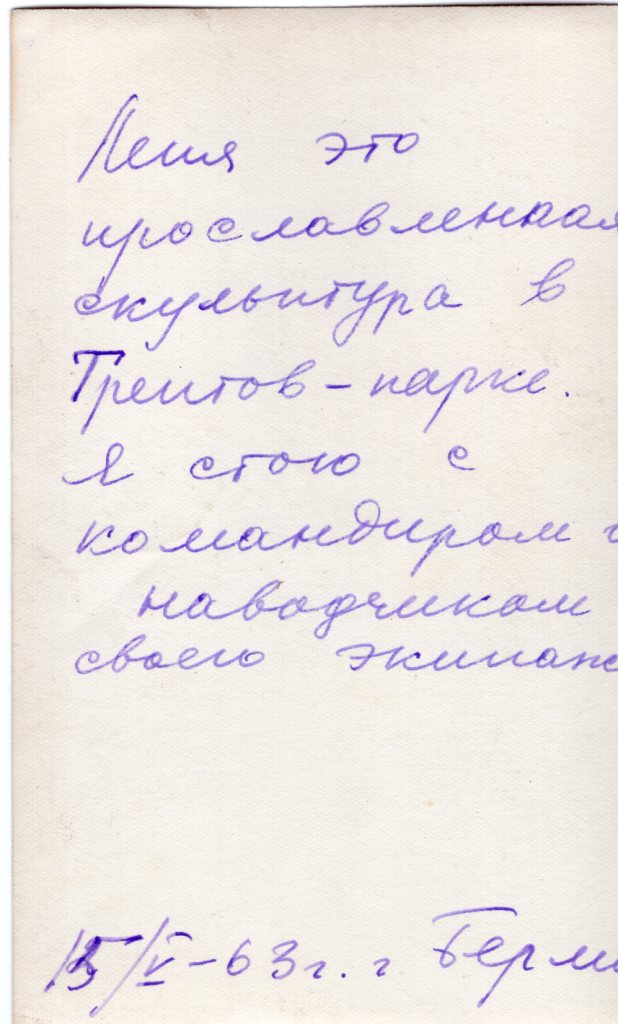 Леня это
прославленная
скульптура в
Трептов-парке.
Я стою с
командиром и
наводчиком
своего экипаж
15/V-63г. г Берли